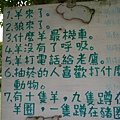 1.羊來了。
2.狼來了。
3.什麼羊最機車。
4.羊沒有了呼吸。
5.羊打電話給老鷹。
6.抽菸的人喜歡打什麼
動物。
7.有十隻羊，九隻蹲在
羊圈，一隻蹲在豬圈